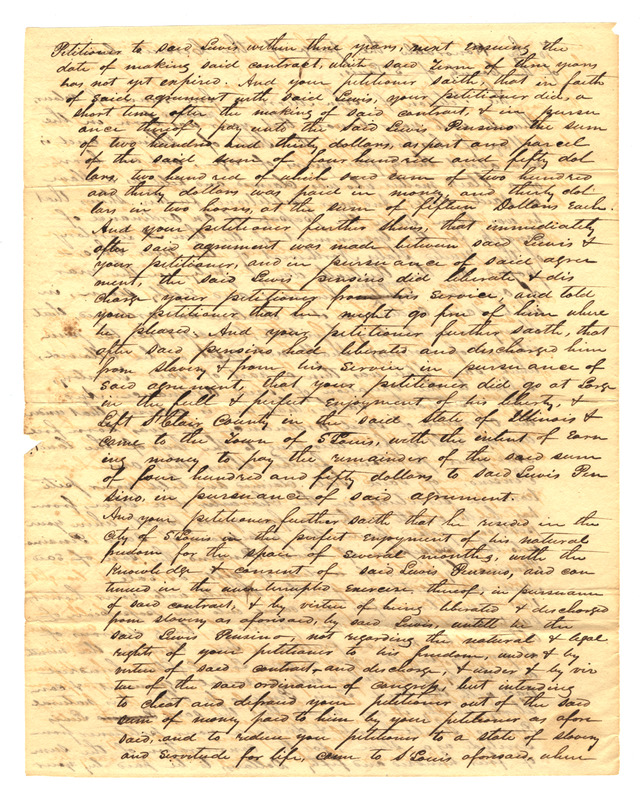 Petitioner to said Lewis within three years, next ensuing the
date of making said contract, which said Term of three years
has not yet expired. And your petitioner saith, that in faith
of said agreement with said Lewis, your petitioner did, a
short time after the making of said contract, & in pursu
ance thereof pay unto the said Lewis Pensino the sum
of two hundred and thirty dollars, as part and parcel
of the said sum of four hundred and fifty dol
lars, two hundred of which said sum of two hundred
and thirty dollars was paid in money and thirty dol
lars in two horses, at the sum of fifteen Dollars Each.
And your petitioner further shews, that immediately
after said agreement was made between said Lewis &
your petitioner, and in pursuance of said agree
ment, the said Lewis pensino did liberate & dis
charge your petitioner from his Service, and told
your petitioner that he might go from him where
he pleased. And your petitioner further saith, that
after said pensino had liberated and discharged him
from slavery & from his Service in pursuance of
said agreement, that your petitioner did go at Large
in the full & perfect Enjoyment of his liberty, &
Left St Clair County in the said State of Illinois &
came to the Town of S Louis, with the intent of Earn
ing money to pay the remainder of the said sum
of four hundred and fifty dollars to said Lewis Pen
sino, in pursuance of said agreement.
And your petitioner further saith that he resided in the
City of S Louis in the perfect enjoyment of his natural
freedom for the space of several months, with the
Knowledge & consent of said Lewis Pensino, and con
tinued in the uninterrupted exercise thereof, in pursuance
of said contract, & by virtue of being liberated & discharged
from slavery as aforesaid, by said Lewis, untill he the
said Lewis Pensino, not regarding the natural & legal
rights of your petitioner to his freedom, under & by
virtue of said contract and discharge, & under & by vir
tue of the said ordinance of congress, but intending
to cheat and defraud your petitioner out of the said
sum of money paid to him by your petitioner as afore
said, and to reduce your petitioner to a state of slavery
and Servitude for life, came to S Louis aforesaid, where